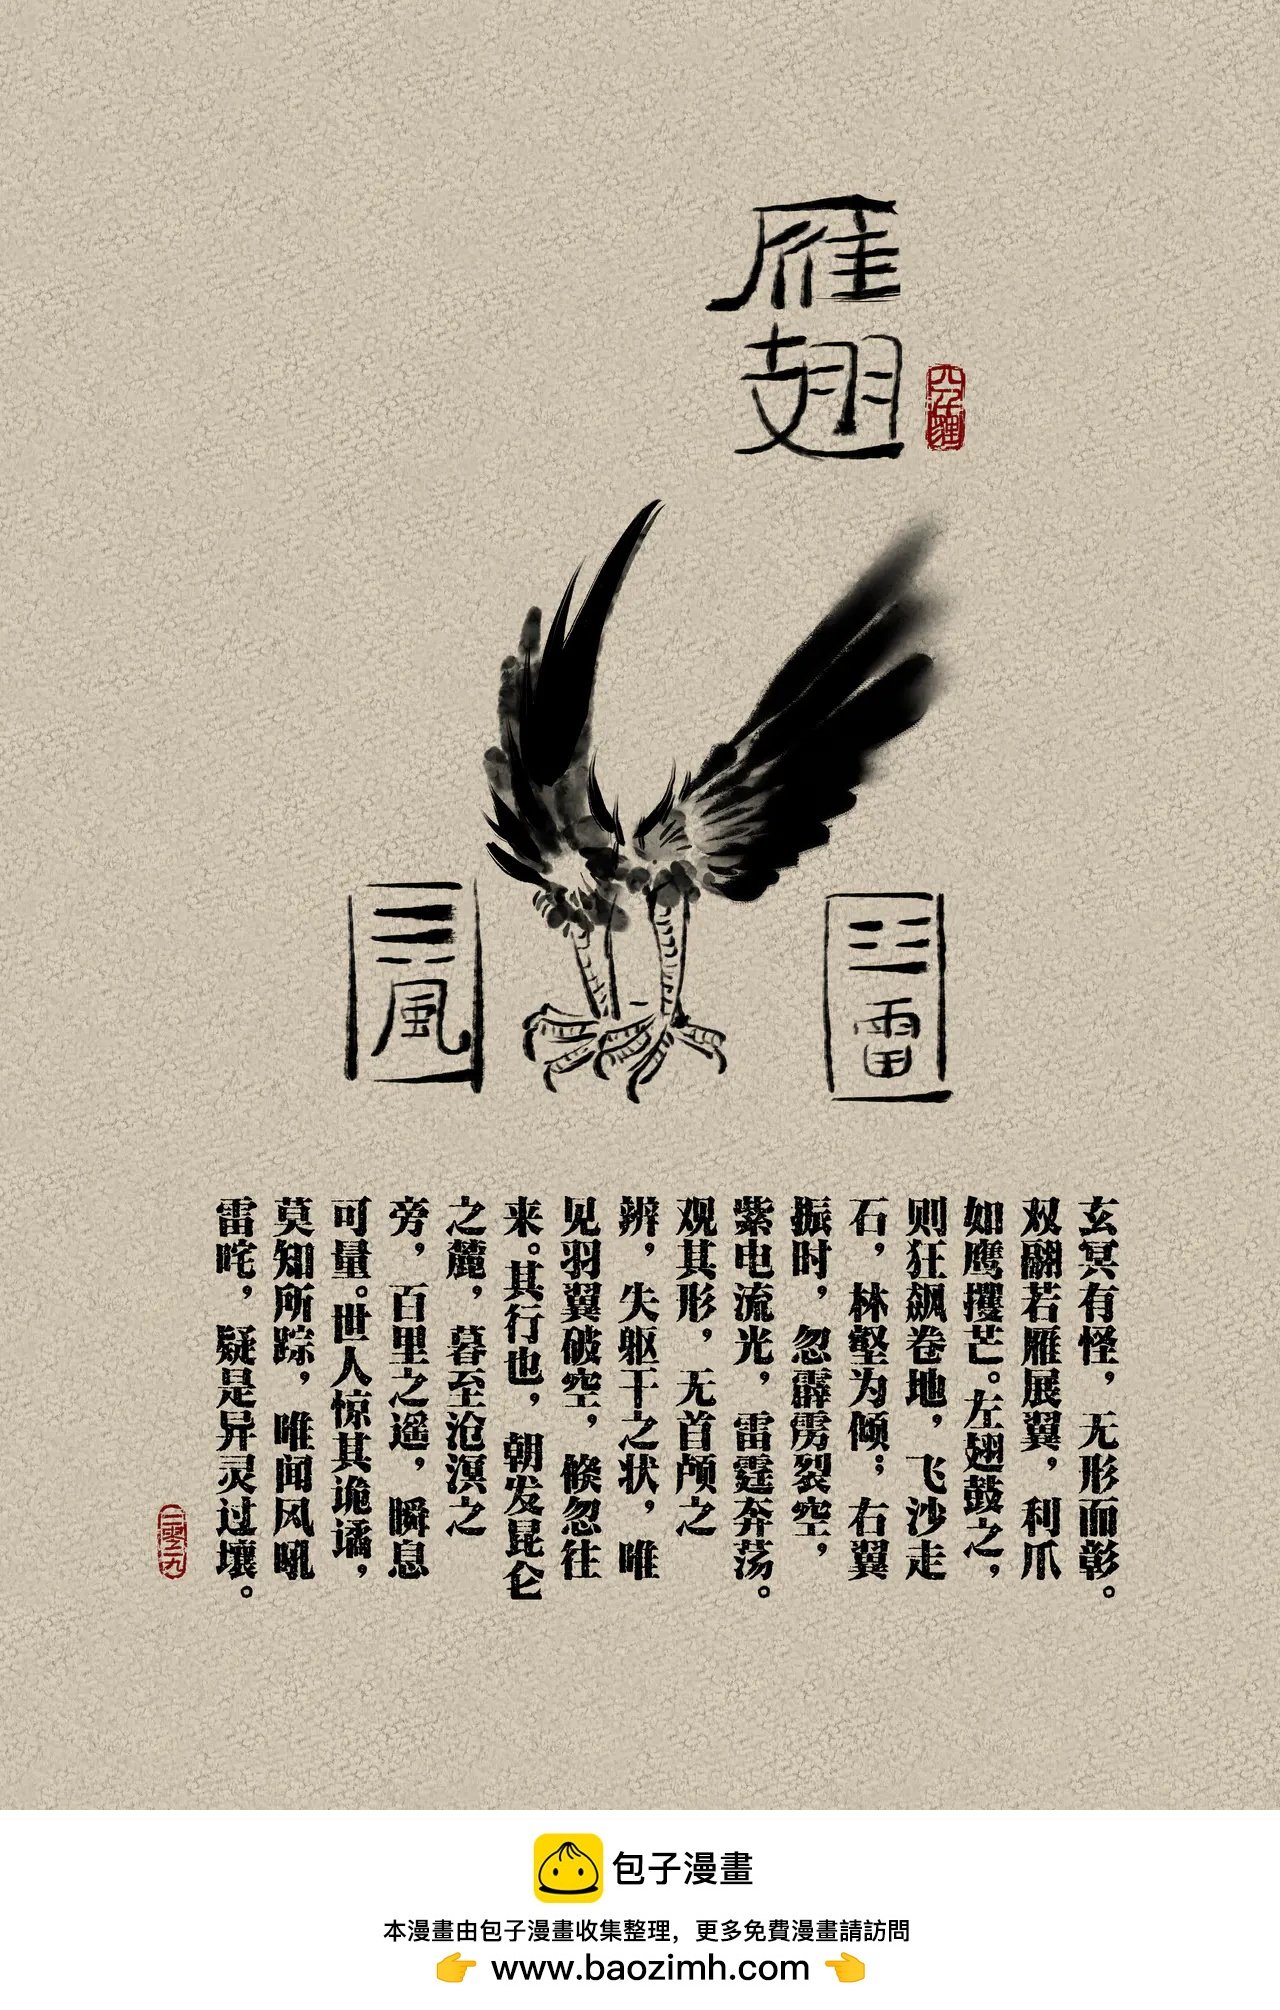 雁
翅
風
雷
玄冥有怪，无形而彰。
双翮若雁展翼，利爪
如鹰攫芒。左翅鼓之，
则狂飙卷地，飞沙走
石，林壑为倾；右翼
振时，忽霹雳裂空，
紫电流光，雷霆奔荡。
观其形，无首颅之
辨，失躯干之状，唯
见羽翼破空，倏忽往
来。其行也，朝发昆仑
之麓，暮至沧溟之
旁，百里之遥，瞬息
可量。世人惊其诡谲，
莫知所踪，唯闻风吼
雷咤，疑是异灵过壤。
二零二九
包子漫畫
本漫畫由包子漫畫收集整理，更多免費漫畫請訪問
👉 www.baozimh.com 👈